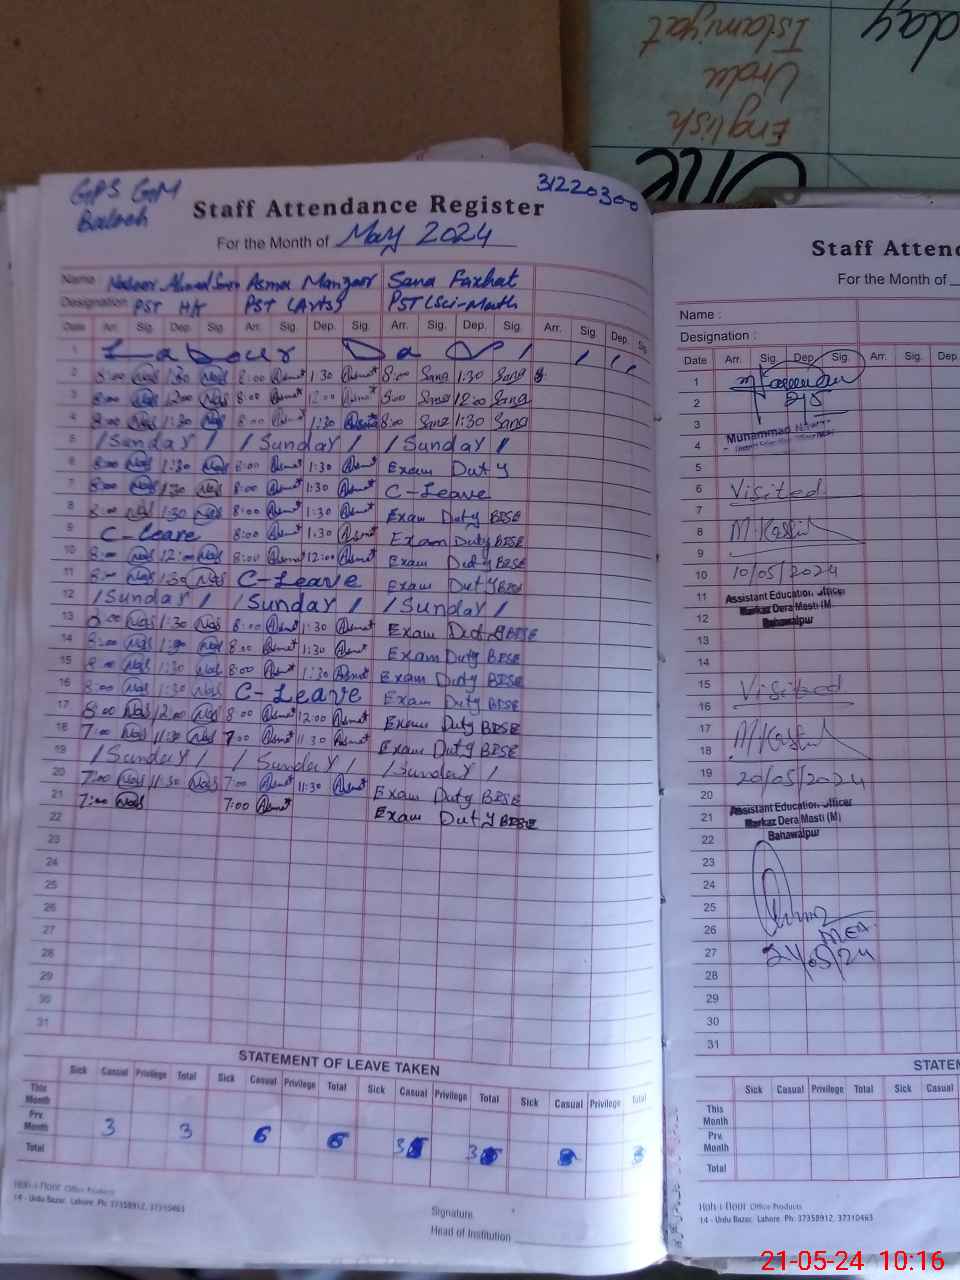 Islamiyat
Urdu
English
day
One
GPS GM
Baloch
31220300
Staff Attendance Register
For the Month of May 2024
Name Naseer Ahmad Asma Manzoor Sana Farhat
Designation PST HK PST (Arts) PST (Sci-Math
Date Arr. Sig. Dep. Sig. Arr. Sig. Dep. Sig. Arr. Sig. Dep. Sig. Arr. Sig. Dep. Sig.
1 Labour Day
2 8:00 Nas 1:30 Nas 8:00 Asma 1:30 Asma 8:00 Sana 1:30 Sana
3 8:00 Nas 12:00 Nas 8:00 Asma 12:00 Asma 8:00 Sana 12:00 Sana
4 8:00 Nas 1:30 Nas 8:00 Asma 1:30 Asma 8:00 Sana 1:30 Sana
5 / Sunday / / Sunday / / Sunday /
6 8:00 Nas 1:30 Nas 8:00 Asma 1:30 Asma Exam Duty
7 8:00 Nas 1:30 Nas 8:00 Asma 1:30 Asma C-Leave
8 8:00 Nas 1:30 Nas 8:00 Asma 1:30 Asma Exam Duty BISE
9 C-Leave 8:00 Asma 1:30 Asma Exam Duty BISE
10 8:00 Nas 12:00 Nas 8:00 Asma 12:00 Asma Exam Duty BISE
11 8:00 Nas 1:30 Nas C-Leave Exam Duty BISE
12 / Sunday / / Sunday / / Sunday /
13 8:00 Nas 1:30 Nas 8:00 Asma 1:30 Asma Exam Duty BISE
14 8:00 Nas 1:30 Nas 8:00 Asma 1:30 Asma Exam Duty BISE
15 8:00 Nas 1:30 Nas 8:00 Asma 1:30 Asma Exam Duty BISE
16 8:00 Nas 1:30 Nas C-Leave Exam Duty BISE
17 8:00 Nas 12:00 Nas 8:00 Asma 12:00 Asma Exam Duty BISE
18 7:00 Nas 11:30 Nas 7:00 Asma 11:30 Asma Exam Duty BISE
19 / Sunday / / Sunday / / Sunday /
20 7:00 Nas 11:30 Nas 7:00 Asma 11:30 Asma Exam Duty BISE
21 7:00 Nas 7:00 Asma Exam Duty BISE
22
23
24
25
26
27
28
29
30
31
STATEMENT OF LEAVE TAKEN
Sick Casual Privilege Total Sick Casual Privilege Total Sick Casual Privilege Total Sick Casual Privilege Total
This Month
Prv. Month 3 3 6 6
Total
Office Products
14 - Urdu Bazar, Lahore. Ph: 37358912, 37310463
Signature
Head of Institution
Staff Atten
For the Month of
Name :
Designation :
Date Arr. Sig. Dep. Sig. Arr. Sig. Dep
1
2
3
4 Muhammad
5
6 Visited
7
8 M. Kashif
9
10 10/05/2024
11 Assistant Education Officer
Markaz Dera Masti (M)
12 Bahawalpur
13
14
15 Visited
16
17
18 M. Kashif
19 20/05/2024
20
21 Assistant Education Officer
Markaz Dera Masti (M)
22 Bahawalpur
23
24
25
26 MEA
27 21/05/24
28
29
30
31
STATEM
Sick Casual Privilege Total Sick Casual
This Month
Prv. Month
Total
Office Products
14 - Urdu Bazar, Lahore. Ph: 37358912, 37310463
21-05-24 10:16